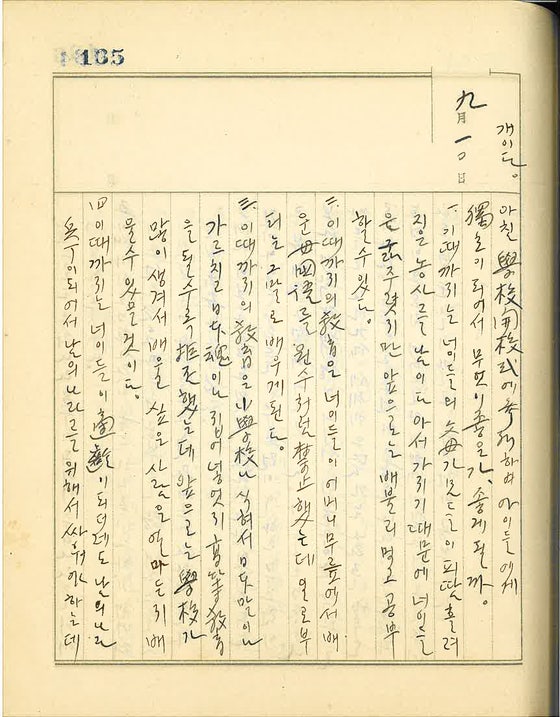 185
개이다.
九月一0日
아침 學校開校式에 參加하여 아이들에게
獨立이 되어서 무엇이 좋은가, 좋게 될까.
一. 이때까지는 너이들의 父母가 兄들이 피땀 흘려
지은 농사를 남이 다 아서가기 때문에 너이들
을 굶주렷지만 앞으로는 배불리 먹고 공부
할 수 있다.
二. 이때까지의 敎育은 너이들이 어머니 무릎에서 배
운 母國語를 원수처럼 禁止했는데 오로부
터는 그 말로 배우게 된다.
三. 이때까지의 敎育은 小學校나 식혀서 日本말이나
가르치고 日本魂이나 집어넣엇지 高等敎育
을 될수록 했는데 앞으로는 學校가
많이 생겨서 배우고 싶은 사람은 얼마든지 배
울 수 있을 것이다.
四 이때까지는 너이들이 適齡이 되더래도 남의 나라
되어서 남의 나라를 위해서 싸워야 하는데